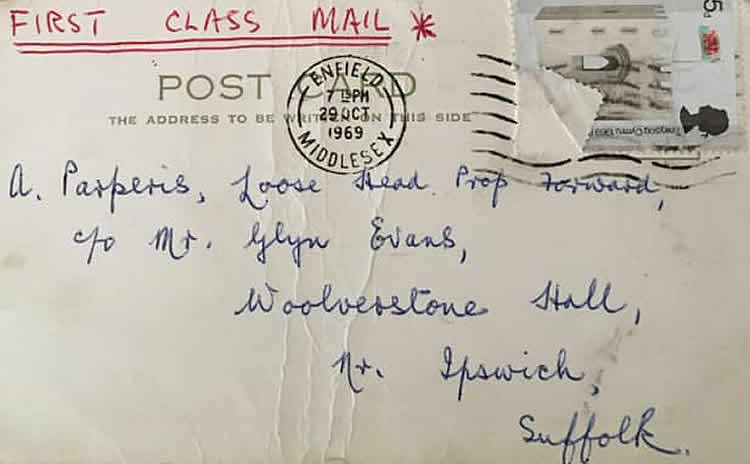 FIRST CLASS MAIL *
5d
POST CARD
THE ADDRESS TO BE WRITTEN ON THIS SIDE
ENFIELD
7 PM
29 OCT
1969
MIDDLESEX
A. Parperis, Loose Head Prop Forward,
c/o Mr. Glyn Evans,
Woolverstone Hall,
Nr. Ipswich,
Suffolk.